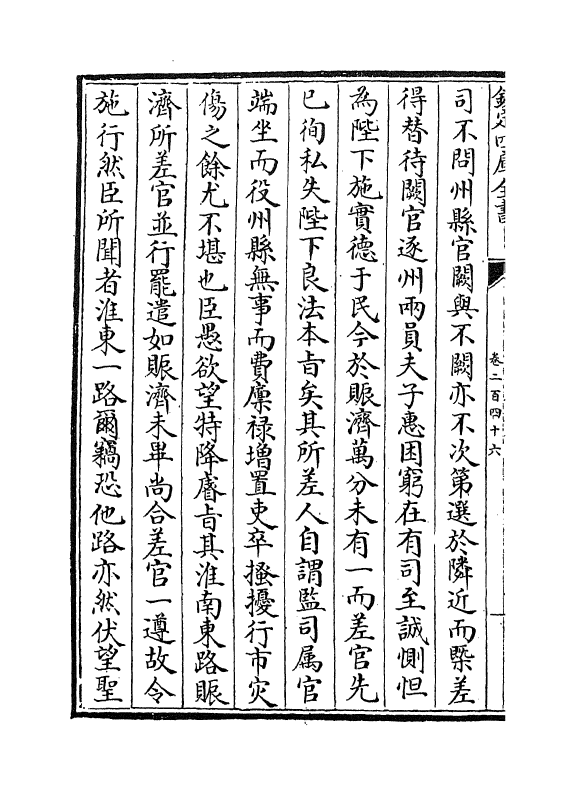 欽定四庫全書
卷二百四十六
司不問州縣官闕與不闕亦不次第選於隣近而槩差
得替待闕官逐州兩員夫子惠困窮在有司至誠惻怛
為陛下施實德于民今於賑濟萬分未有一而差官先
已徇私失陛下良法本㫖矣其所差人自謂監司属官
端坐而役州縣無事而費廩禄增置吏卒搔擾行市灾
傷之餘尤不堪也臣愚欲望特降睿㫖其淮南東路賑
濟所差官並行罷遣如賑濟未畢尚合差官一遵故令
施行然臣所聞者淮東一路爾竊恐他路亦然伏望聖